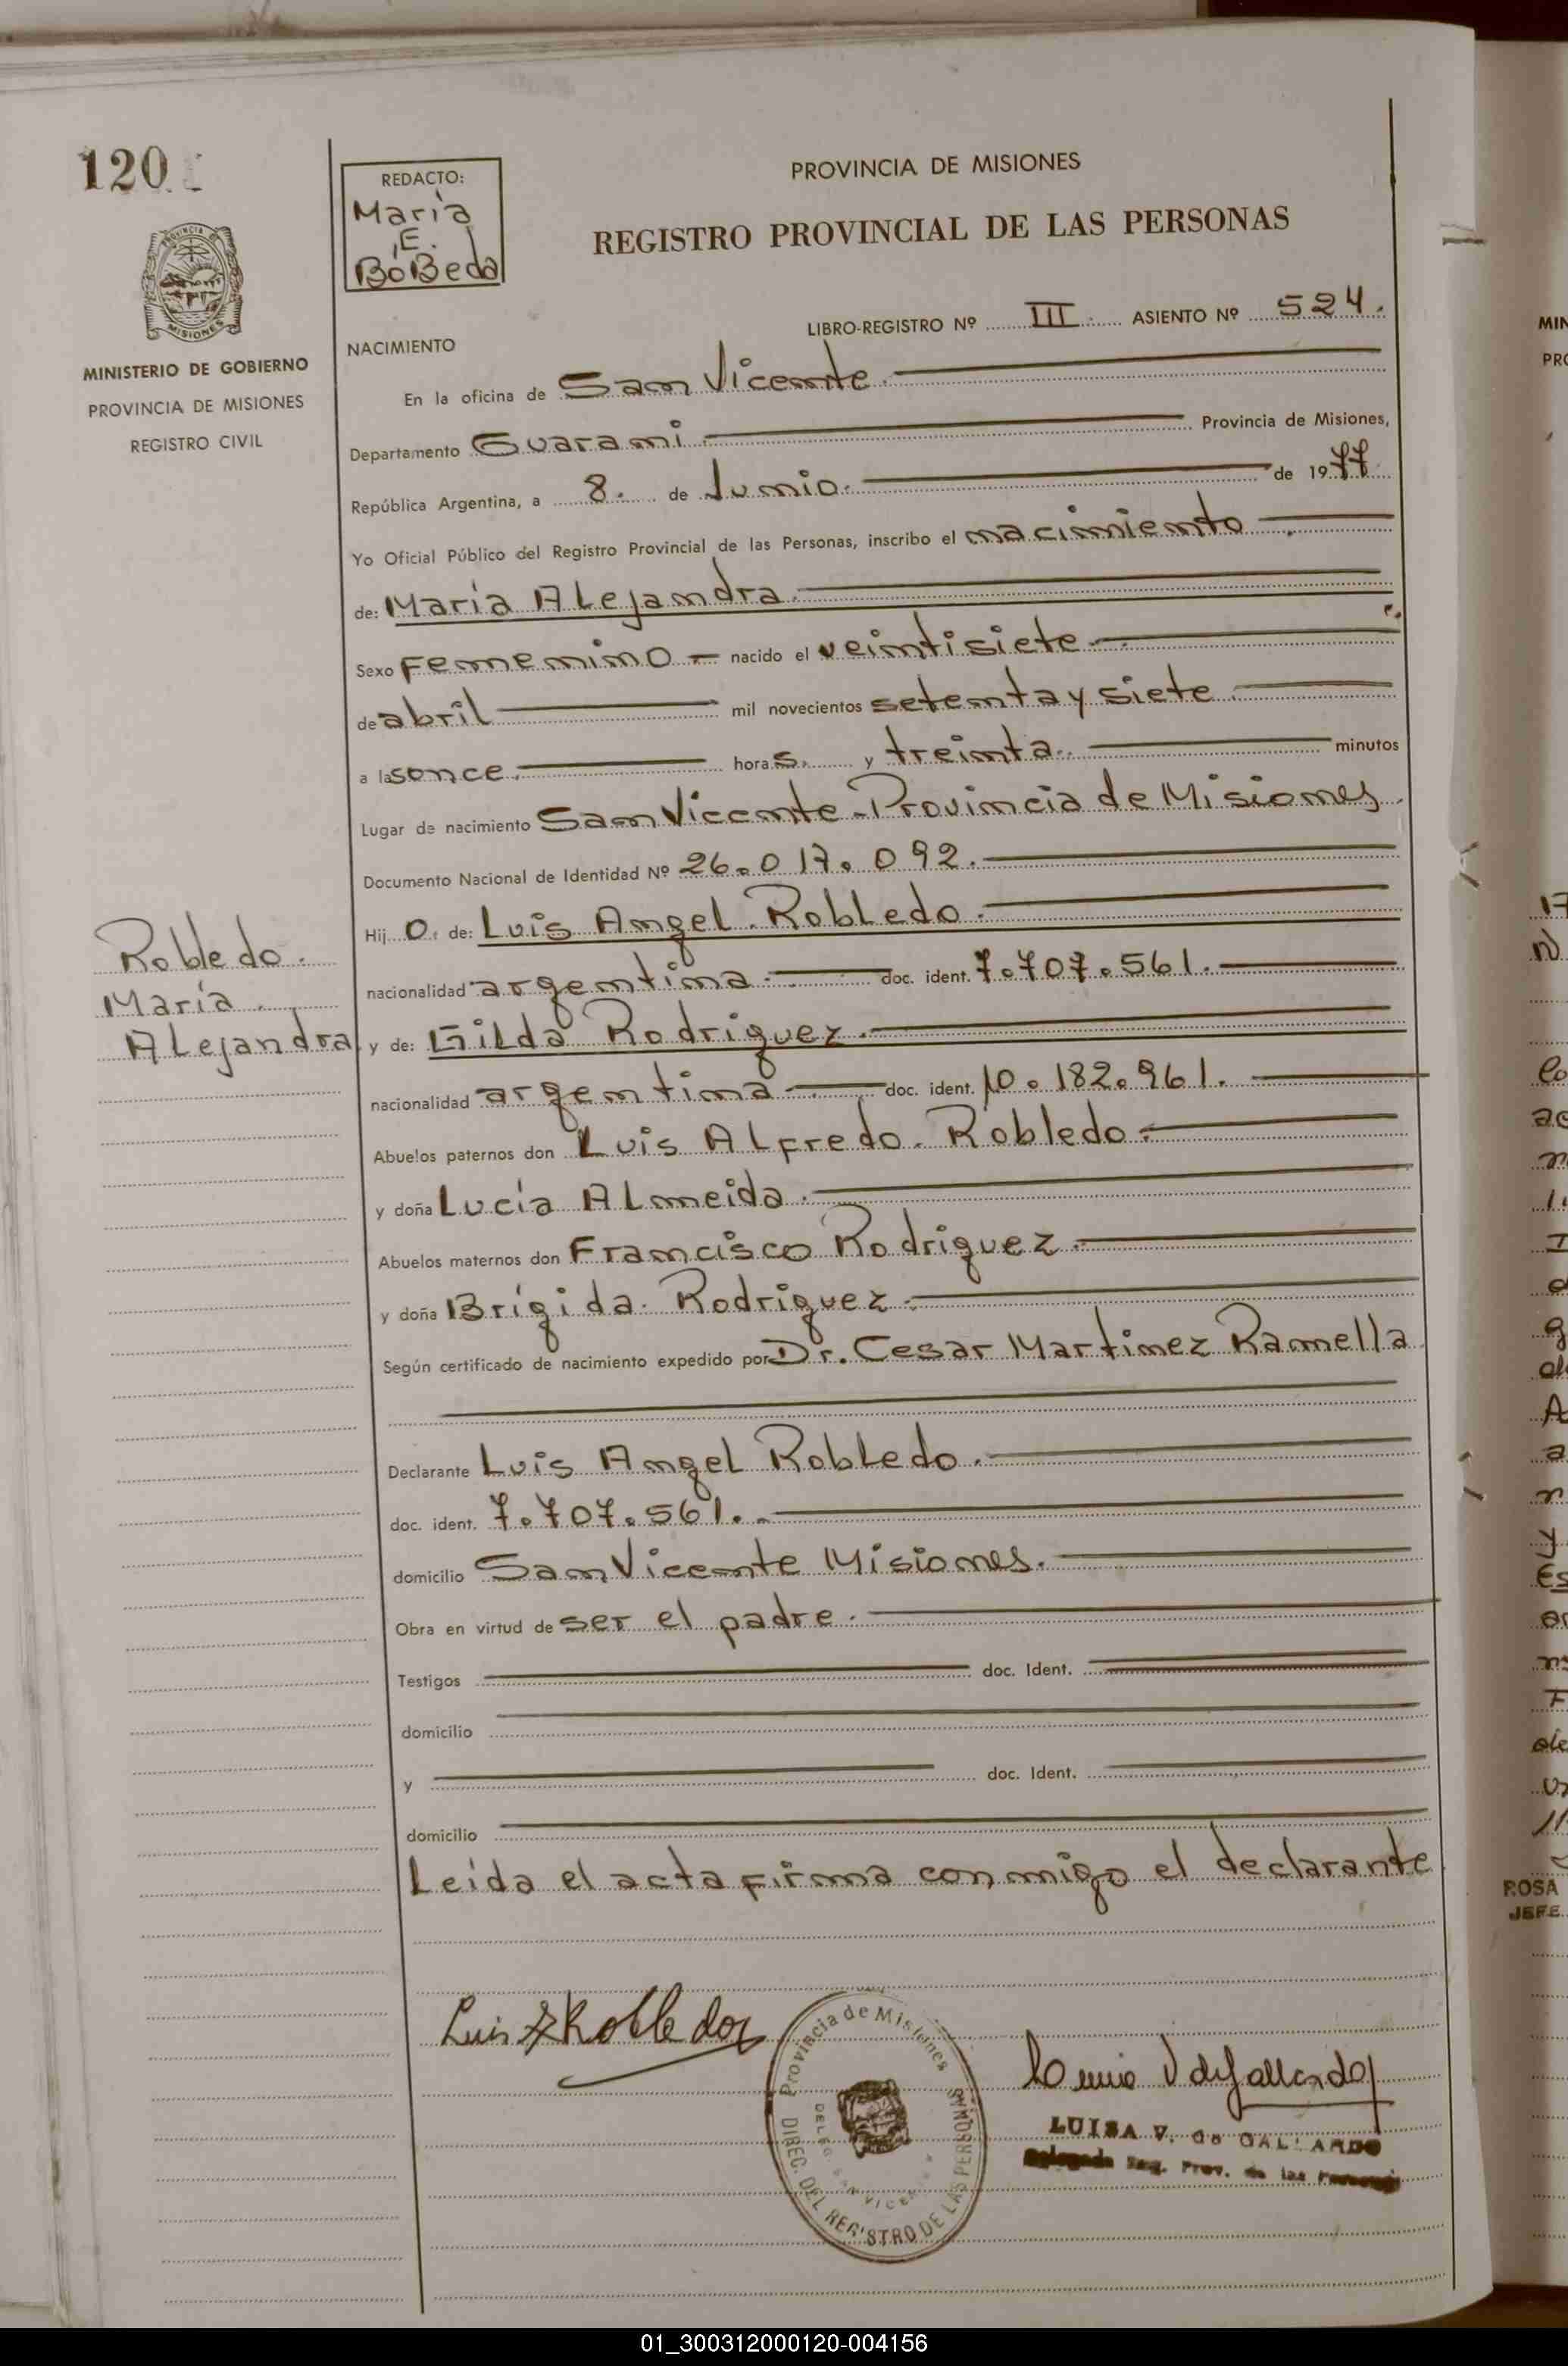 120
REDACTO:
María
E.
BóBeda
PROVINCIA DE MISIONES
REGISTRO PROVINCIAL DE LAS PERSONAS
PROVINCIA DE
MISIONES
MINISTERIO DE GOBIERNO
PROVINCIA DE MISIONES
REGISTRO CIVIL
LIBRO-REGISTRO Nº III. ASIENTO Nº 524.
NACIMIENTO
En la oficina de San Vicente.
Departamento Guaraní. Provincia de Misiones,
República Argentina, a 8. de Junio. de 1977
Yo Oficial Público del Registro Provincial de las Personas, inscribo el nacimiento
de: María Alejandra.
Sexo Femenino nacido el veintisiete
de abril mil novecientos setenta y siete.
a las once. horas. y treinta. minutos
Lugar de nacimiento San Vicente - Provincia de Misiones.
Documento Nacional de Identidad Nº 26.017.092.
Hij o. de: Luis Angel Robledo.
nacionalidad argentina doc. ident. 7.707.561.
y de: Gilda Rodriguez.
nacionalidad argentina doc. ident. 10.182.961.
Abuelos paternos don Luis Alfredo. Robledo.
y doña Lucía Almeida.
Abuelos maternos don Francisco Rodriguez.
y doña Brígida. Rodriguez.
Según certificado de nacimiento expedido por Dr. Cesar Martinez Ramella
Declarante Luis Angel Robledo.
doc. ident. 7.707.561.
domicilio San Vicente Misiones.
Obra en virtud de ser el padre.
Testigos doc. Ident.
domicilio
y doc. Ident.
domicilio
Leída el acta firma conmigo el declarante
Robledo.
María
Alejandra
Luis A Robledo
Provincia de Misiones
DIREC. DEL REGISTRO DE LAS PERSONAS
DELEG. SAN VICENTE
LUISA V. de GALLARDO
Delegada Reg. Prov. de las Personas
ROSA
JEFE
01_300312000120-004156